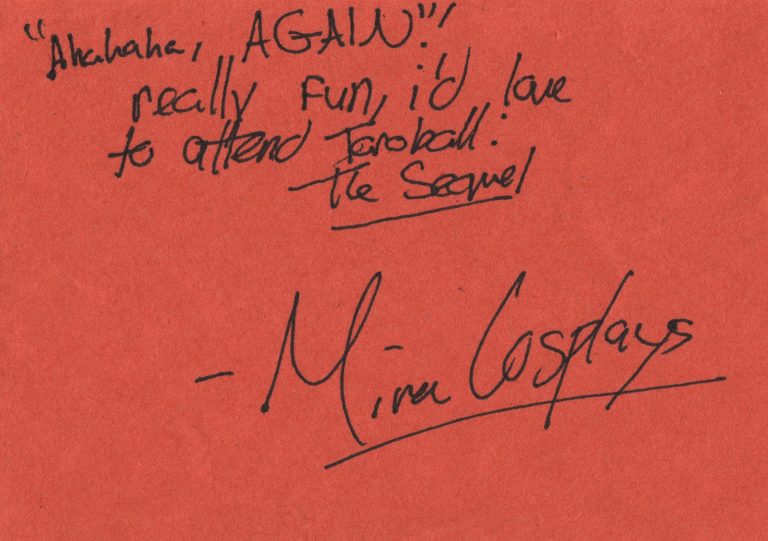 "Ahahaha, AGAIN!"
really fun, i'd love
to attend Taroball:
The Sequel
- Mira Cosplays